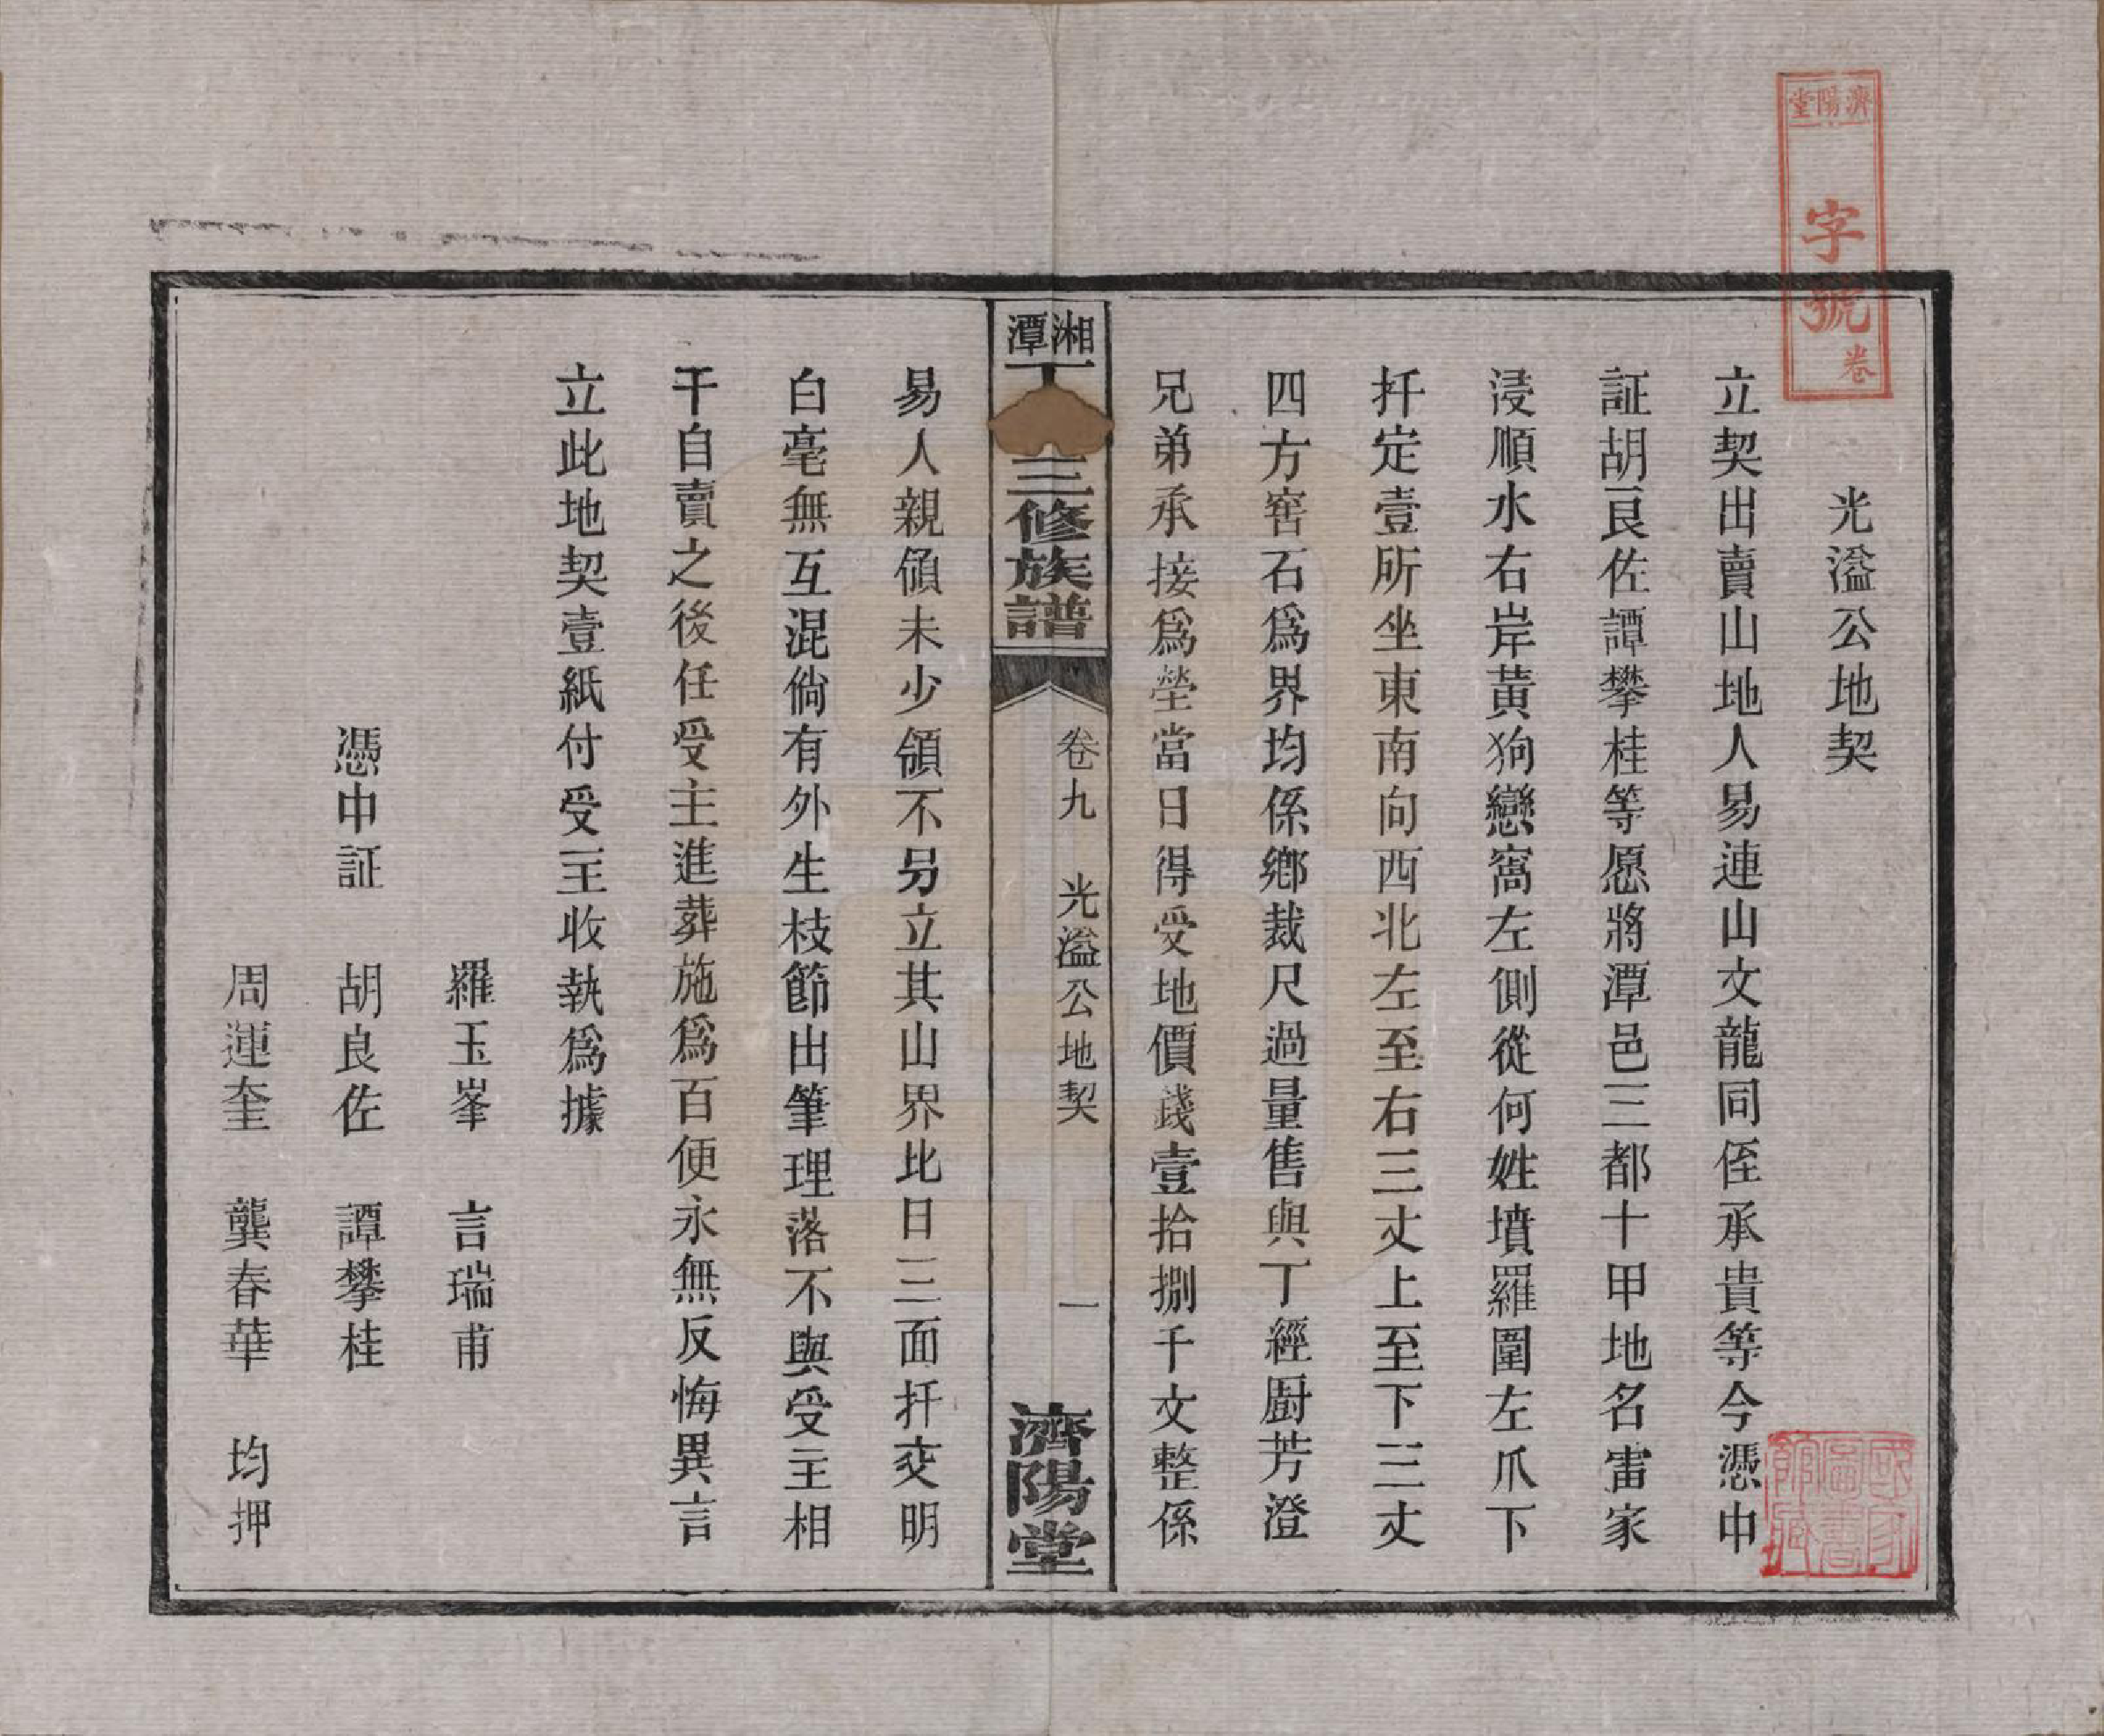 濟陽堂
字號
卷
光溢公地契
立契出賣山地人易連山文龍同侄承貴等今憑中
証胡良佐譚攀桂等愿將潭邑三都十甲地名雷家
浸順水右岸黃狗戀窩左側從何姓墳羅圍左爪下
扦定壹所坐東南向西北左至右三丈上至下三丈
四方窖石爲界均係鄉裁尺過量售與丁經厨芳澄
兄弟承接爲塋當日得受地價錢壹拾捌千文整係
湘潭丁 三修族譜
卷九 光溢公地契 一
濟陽堂
易人親領未少領不另立其山界比日三面扦交明
白毫無互混倘有外生枝節出筆理落不與受主相
干自賣之後任受主進葬施爲百便永無反悔異言
立此地契壹紙付受主收執爲據
羅玉峯 言瑞甫
憑中証 胡良佐 譚攀桂
周運奎 龔春華 均押
國家圖書館藏